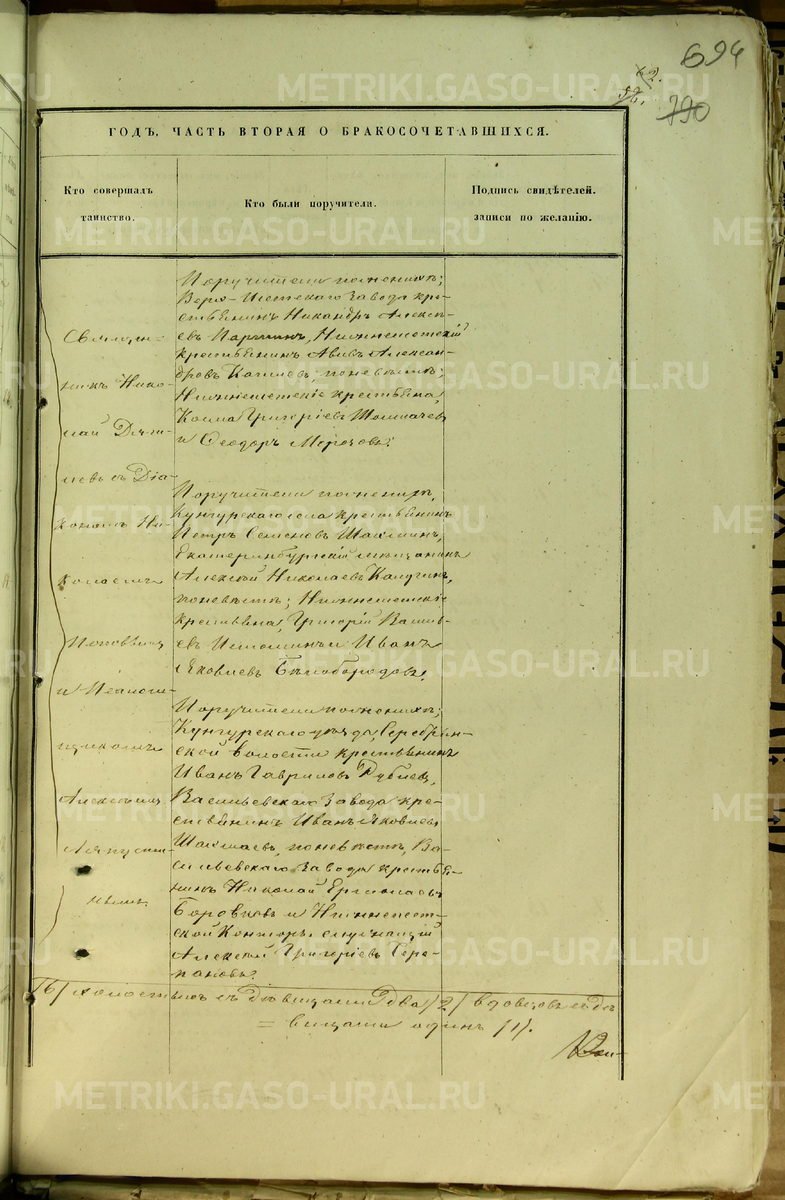 694
62.
58.
790
ГОДЪ, ЧАСТЬ ВТОРАЯ О БРАКОСОЧЕТАВШИХСЯ.
Кто совершалъ
таинство.
Кто были поручители.
Подпись свидѣтелей.
записи по желанію.
Священ-
никъ Нико-
лай
съ Діа-
кономъ Ни-
колаемъ
Поповымъ
и Исаломщ-
Алексѣемъ
Ляпуст-
нымъ.
Поручители по женихѣ;
Верх-Исетскаго Завода кре-
стьянинъ Никандръ Алексѣ-
евъ Паршинъ, Нижнеисетскій
крестьянинъ Авивъ Алексан-
дровъ; по невѣстѣ;
Нижнеисетскіе крестьяна,
Козма Григоріевъ Толмачевъ
и Ѳеодоръ Морозовъ.
Поручители по женихѣ,
Кунгурскаго села крестьянинъ
Петръ Семеновъ Шахминъ,
Екатеринбургскій мѣщанинъ
Алексѣй Николаевъ Калугинъ,
по невѣстѣ; Нижнеисетскіе
крестьяна, Григорій Василь-
евъ Истоминъ и Иванъ
Яковлевъ Бѣлобородовъ.
Поручители по женихѣ;
Кунгурскаго уѣзда, Серебрян-
ской волости крестьянинъ
Иванъ Гавриловъ Дубцевъ,
Васильевскаго Завода кре-
стьянинъ Иванъ Яковлевъ
по невѣстѣ, Ва-
сильевскаго Завода крестья-
нинъ Николай Ермолаевъ
Боровковъ и Нижнеисет-
ской Конторы служащій
Алексѣй Григоріевъ Чере-
пановъ.
холостыхъ съ дѣвицами два /2/ вдовцовъ съ дѣ-
= вицами одинъ /1/.
METRIKI.GASO-URAL.RU